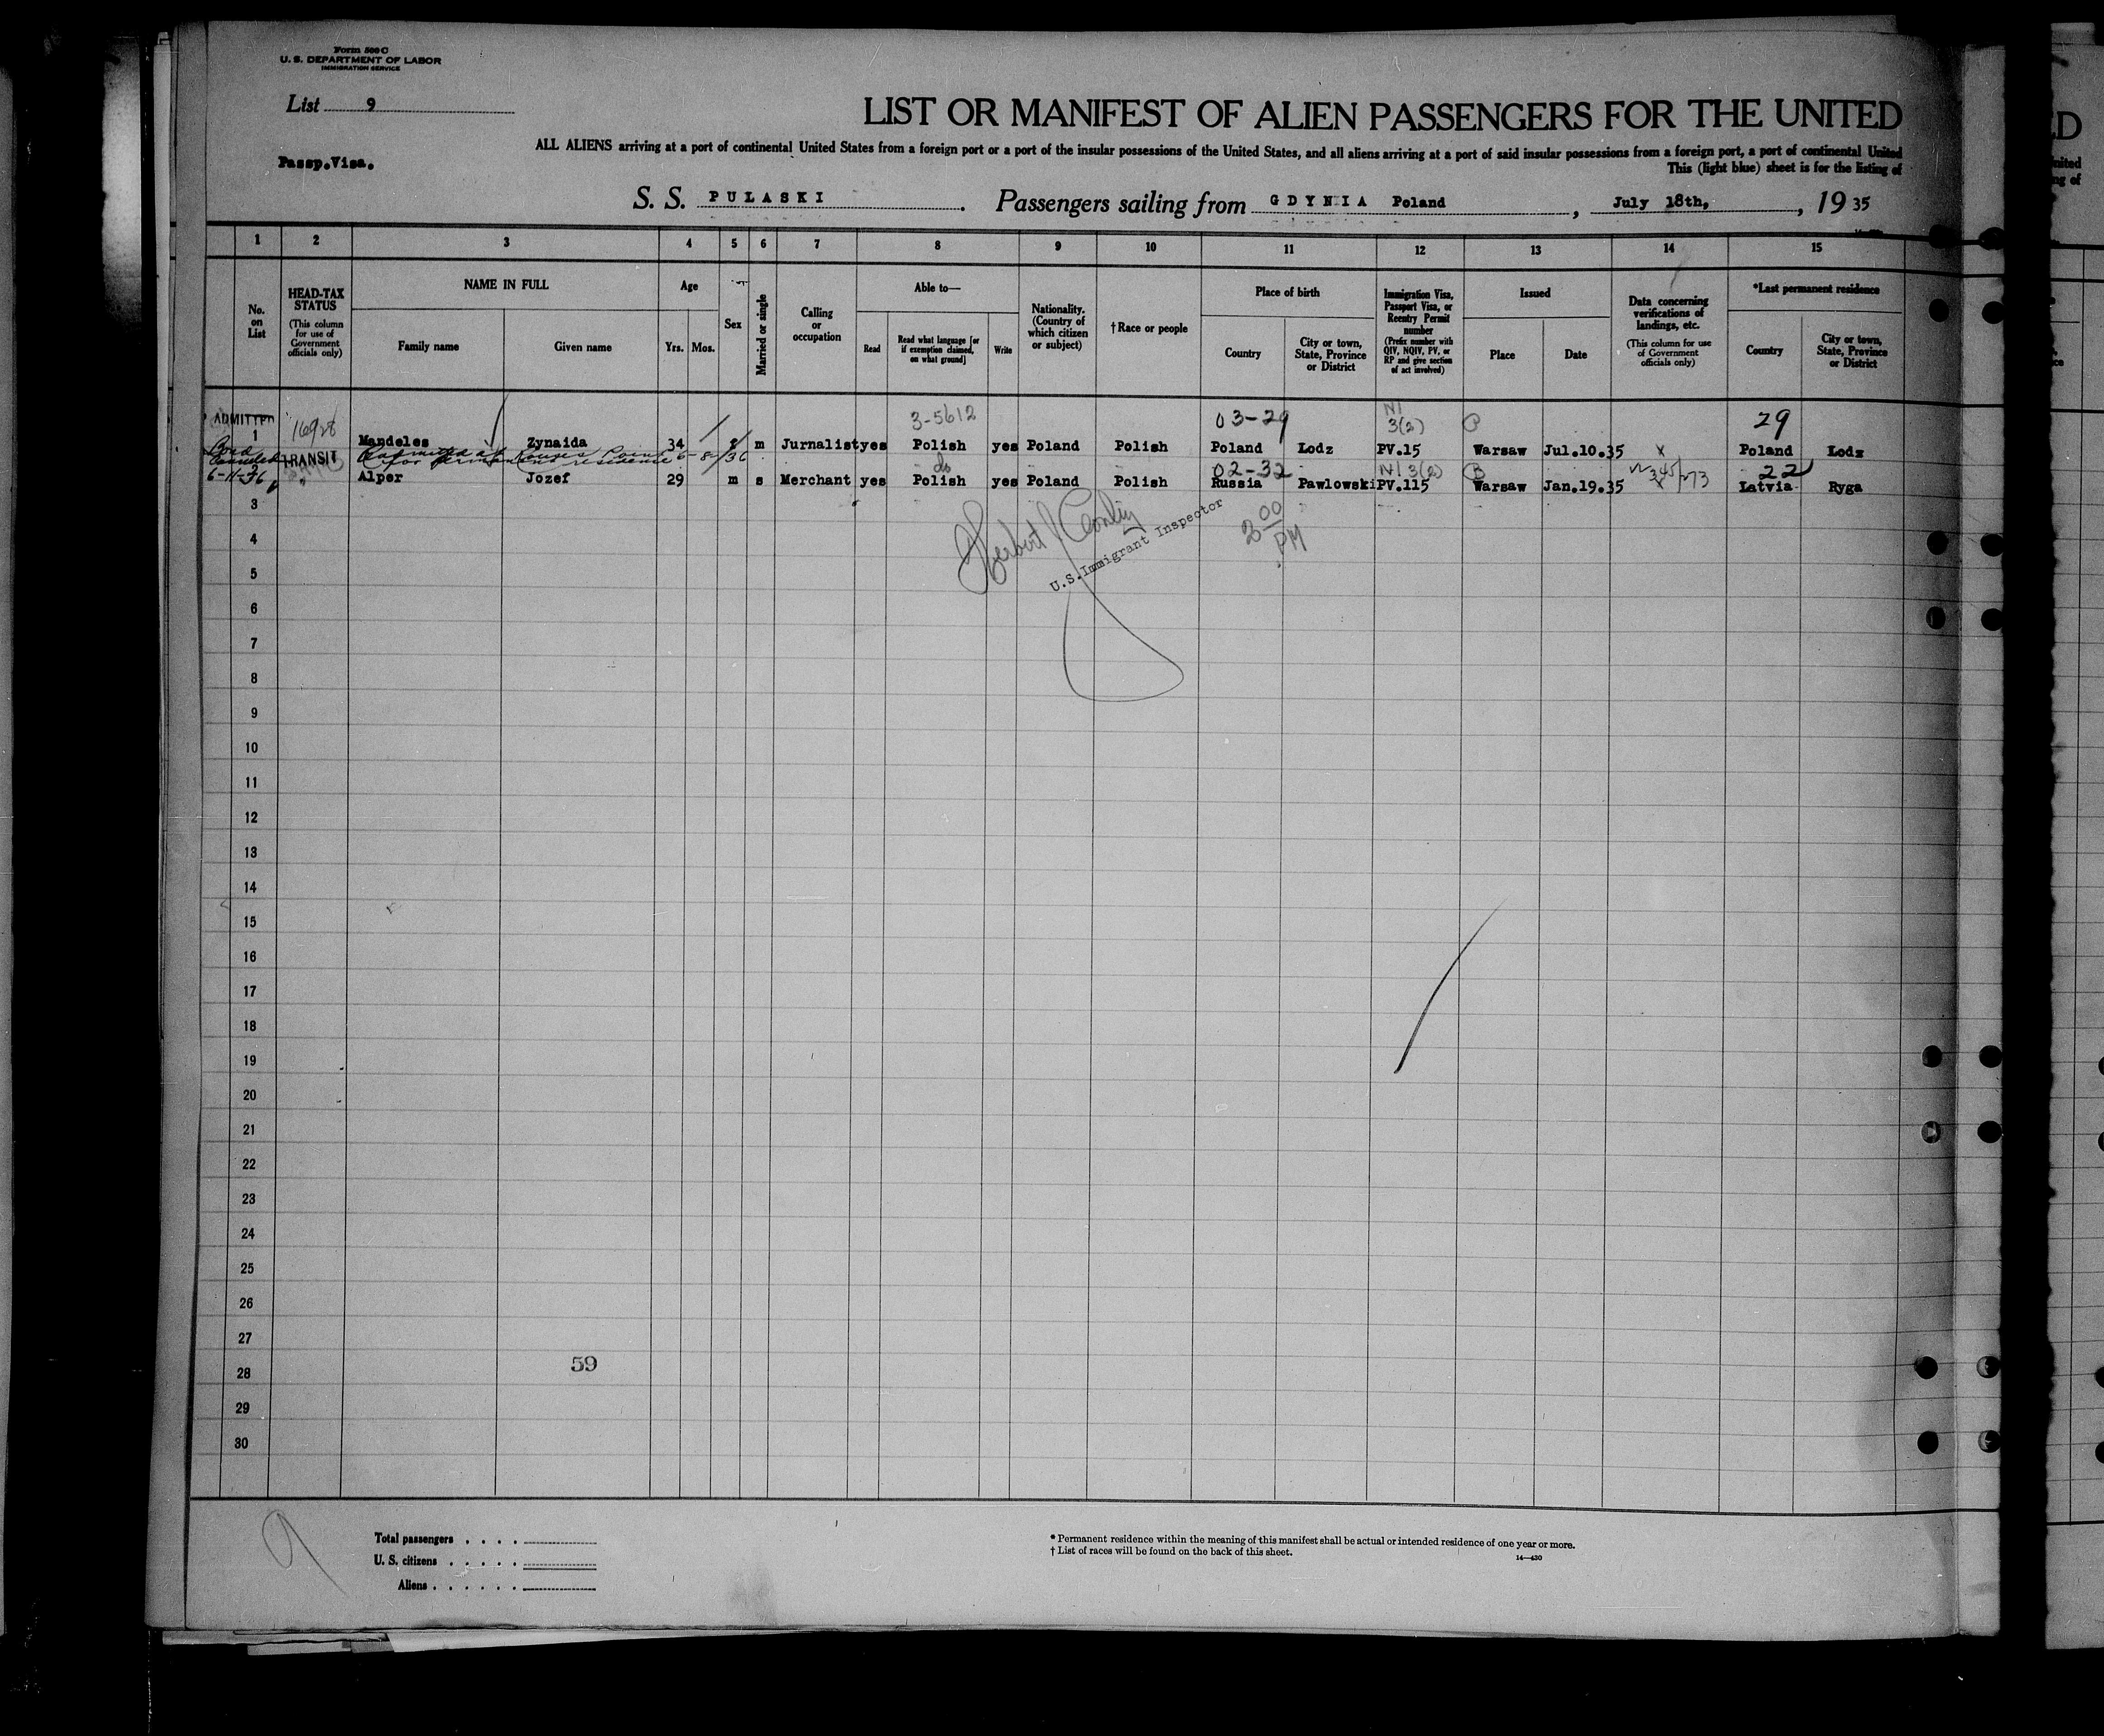 Form 500 C
U. S. DEPARTMENT OF LABOR
IMMIGRATION SERVICE
List 9
LIST OR MANIFEST OF ALIEN PASSENGERS FOR THE UNITED
Passp.Visa.
ALL ALIENS arriving at a port of continental United States from a foreign port or a port of the insular possessions of the United States, and all aliens arriving at a port of said insular possessions from a foreign port, a port of continental United
This (light blue) sheet is for the listing of
S. S. PULASKI. Passengers sailing from GDYNIA Poland, July 18th, 1935
1 2 3 4 5 6 7 8 9 10 11 12 13 14 15
No. on List
HEAD-TAX STATUS
(This column for use of Government officials only)
NAME IN FULL
Family name
Given name
Age
Yrs. Mos.
Sex
Married or single
Calling or occupation
Able to—
Read
Read what language [or if exemption claimed, on what ground]
Write
Nationality. (Country of which citizen or subject)
†Race or people
Place of birth
Country
City or town, State, Province or District
Immigration Visa, Passport Visa, or Reentry Permit number
(Prefix number with QIV, NQIV, PV, or RP and give section of act involved)
Issued
Place
Date
Data concerning verifications of landings, etc.
(This column for use of Government officials only)
*Last permanent residence
Country
City or town, State, Province or District
ADMITTED 3-5612 03-29 NI 3(2) 29
1 Mandeles Zynaida 34 f m Jurnalist yes Polish yes Poland Polish Poland Lodz PV.15 Warsaw Jul.10.35 x Poland Lodz
Bond Canceled 6-11-36
Readmitted at Rouses Point 6-8-/36
for permanent residence
TRANSIT do 02-32 NI 3(2) 22
Alper Jozef 29 m s Merchant yes Polish yes Poland Polish Russia Pawlowski PV.115 Warsaw Jan.19.35 x Latvia Ryga
3
4
5
6
7
8
9
10
11
12
13
14
15
16
17
18
19
20
21
22
23
24
25
26
27
28
29
30
U.S.Immigrant Inspector
00
PM
59
9
Total passengers
U. S. citizens
Aliens
* Permanent residence within the meaning of this manifest shall be actual or intended residence of one year or more.
† List of races will be found on the back of this sheet.
14—430
D